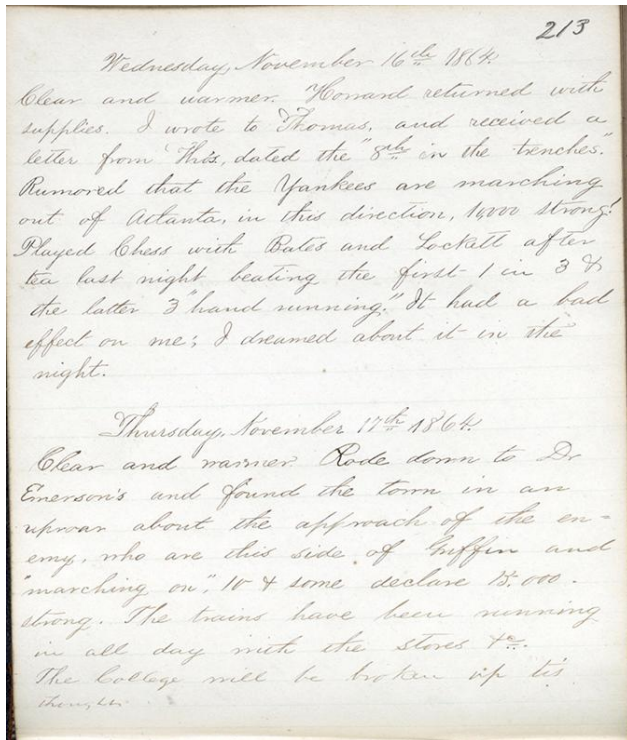 213
Wednesday, November 16th 1864.
Clear and warmer. Howard returned with
supplies. I wrote to Thomas, and received a
letter from this, dated the "8th in the trenches."
Rumored that the Yankees are marching
out of Atlanta, in this direction, 10,000 strong!
Played Chess with Bates and Lockett after
tea last night beating the first 1 in 3 &
the latter 3 "hand running." It had a bad
effect on me; I dreamed about it in the
night.
Thursday, November 17th 1864.
Clear and warmer. Rode down to Dr
Emerson's and found the town in an
uproar about the approach of the en-
emy, who are this side of Griffin and
"marching on", 10 & some declare 15.000.
strong. The trains have been running
in all day with the stores &c.
The College will be broken up tis
thought.